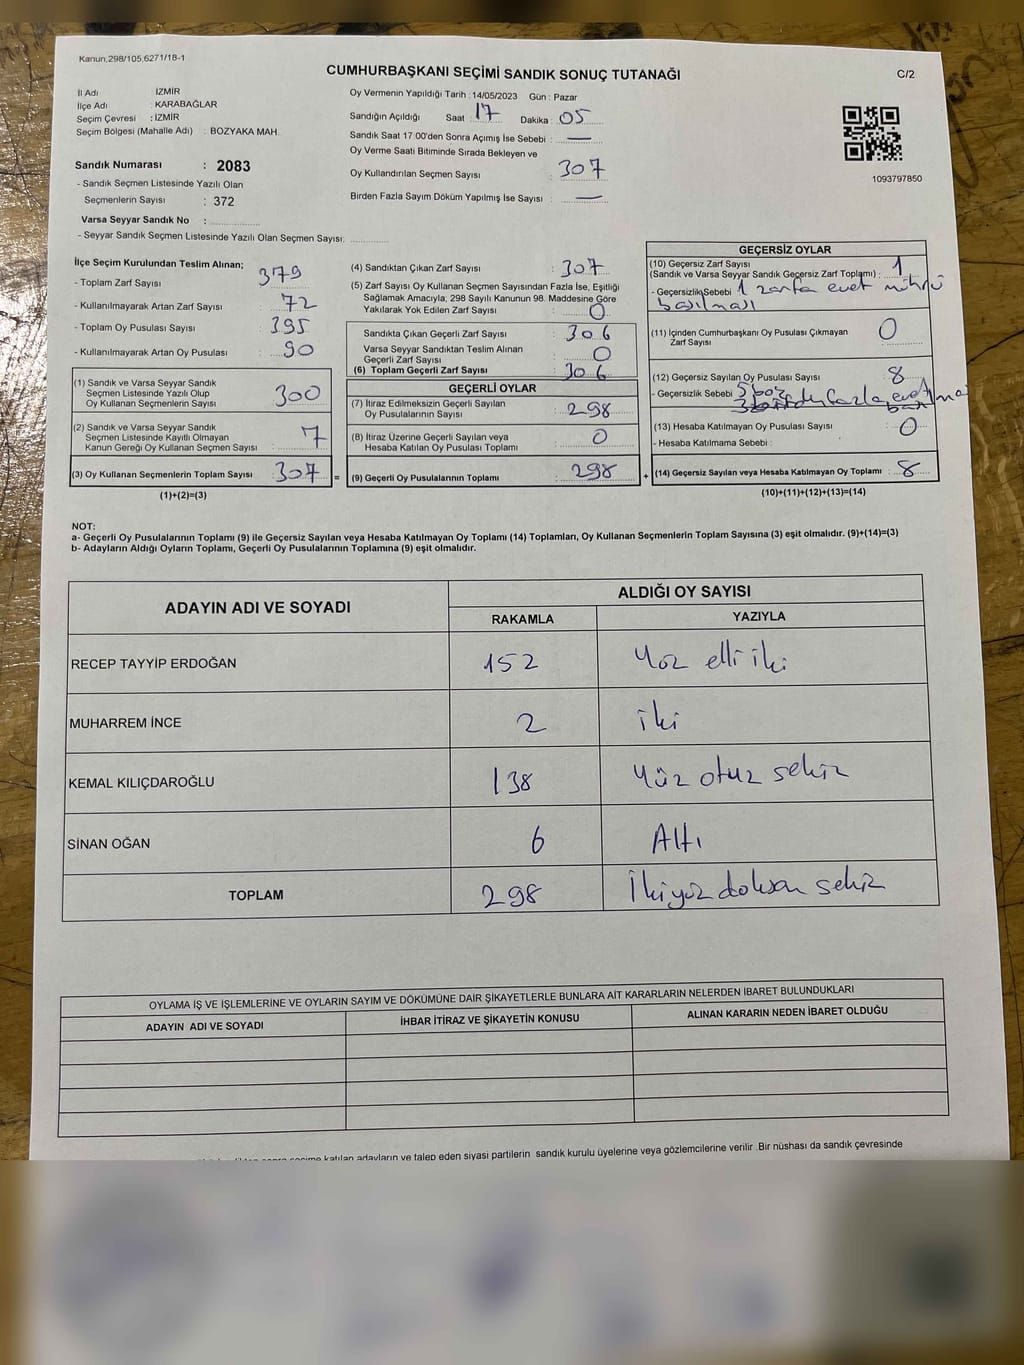 Kanun,298/105,6271/18-1
CUMHURBAŞKANI SEÇİMİ SANDIK SONUÇ TUTANAĞI
C/2
İl Adı : İZMİR
İlçe Adı : KARABAĞLAR
Seçim Çevresi : İZMİR
Seçim Bölgesi (Mahalle Adı) : BOZYAKA MAH.
Sandık Numarası : 2083
- Sandık Seçmen Listesinde Yazılı Olan
Seçmenlerin Sayısı : 372
Varsa Seyyar Sandık No :
- Seyyar Sandık Seçmen Listesinde Yazılı Olan Seçmen Sayısı:
Oy Vermenin Yapıldığı Tarih : 14/05/2023 Gün : Pazar
Sandığın Açıldığı Saat : 17 Dakika : 05
Sandık Saat 17:00'den Sonra Açımış İse Sebebi : —
Oy Verme Saati Bitiminde Sırada Bekleyen ve
Oy Kullandırılan Seçmen Sayısı : 307
Birden Fazla Sayım Döküm Yapılmış İse Sayısı : —
1093797850
İlçe Seçim Kurulundan Teslim Alınan;
- Toplam Zarf Sayısı : 379
- Kullanılmayarak Artan Zarf Sayısı : 72
- Toplam Oy Pusulası Sayısı : 395
- Kullanılmayarak Artan Oy Pusulası : 90
(1) Sandık ve Varsa Seyyar Sandık
Seçmen Listesinde Yazılı Olup
Oy Kullanan Seçmenlerin Sayısı : 300
(2) Sandık ve Varsa Seyyar Sandık
Seçmen Listesinde Kayıtlı Olmayan
Kanun Gereği Oy Kullanan Seçmen Sayısı : 7
(3) Oy Kullanan Seçmenlerin Toplam Sayısı : 307 =
(1)+(2)=(3)
(4) Sandıktan Çıkan Zarf Sayısı : 307
(5) Zarf Sayısı Oy Kullanan Seçmen Sayısından Fazla İse, Eşitliği
Sağlamak Amacıyla; 298 Sayılı Kanunun 98. Maddesine Göre
Yakılarak Yok Edilen Zarf Sayısı : 0
Sandıkta Çıkan Geçerli Zarf Sayısı : 306
Varsa Seyyar Sandıktan Teslim Alınan
Geçerli Zarf Sayısı : 0
(6) Toplam Geçerli Zarf Sayısı : 306
GEÇERLİ OYLAR
(7) İtiraz Edilmeksizin Geçerli Sayılan
Oy Pusulalarının Sayısı : 298
(8) İtiraz Üzerine Geçerli Sayılan veya
Hesaba Katılan Oy Pusulası Toplamı : 0
(9) Geçerli Oy Pusulalarının Toplamı : 298 +
GEÇERSİZ OYLAR
(10) Geçersiz Zarf Sayısı
(Sandık ve Varsa Seyyar Sandık Geçersiz Zarf Toplamı) : 1
- Geçersizlik Sebebi : 1 zarfa evet mührü
basılması
(11) İçinden Cumhurbaşkanı Oy Pusulası Çıkmayan
Zarf Sayısı : 0
(12) Geçersiz Sayılan Oy Pusulası Sayısı : 8
- Geçersizlik Sebebi 5 boş
fazla evet
(13) Hesaba Katılmayan Oy Pusulası Sayısı : 0
- Hesaba Katılmama Sebebi :
(14) Geçersiz Sayılan veya Hesaba Katılmayan Oy Toplamı : 8
(10)+(11)+(12)+(13)=(14)
NOT:
a- Geçerli Oy Pusulalarının Toplamı (9) ile Geçersiz Sayılan veya Hesaba Katılmayan Oy Toplamı (14) Toplamları, Oy Kullanan Seçmenlerin Toplam Sayısına (3) eşit olmalıdır. (9)+(14)=(3)
b- Adayların Aldığı Oyların Toplamı, Geçerli Oy Pusulalarının Toplamına (9) eşit olmalıdır.
ADAYIN ADI VE SOYADI ALDIĞI OY SAYISI
RAKAMLA YAZIYLA
RECEP TAYYİP ERDOĞAN 152 Yüz elli iki
MUHARREM İNCE 2 iki
KEMAL KILIÇDAROĞLU 138 Yüz otuz sekiz
SİNAN OĞAN 6 Altı
TOPLAM 298 İkiyüz doksan sekiz
OYLAMA İŞ VE İŞLEMLERİNE VE OYLARIN SAYIM VE DÖKÜMÜNE DAİR ŞİKAYETLERLE BUNLARA AİT KARARLARIN NELERDEN İBARET BULUNDUKLARI
ADAYIN ADI VE SOYADI İHBAR İTİRAZ VE ŞİKAYETİN KONUSU ALINAN KARARIN NEDEN İBARET OLDUĞU
seçime katılan adayların ve talep eden siyasi partilerin sandık kurulu üyelerine veya gözlemcilerine verilir .Bir nüshası da sandık çevresinde